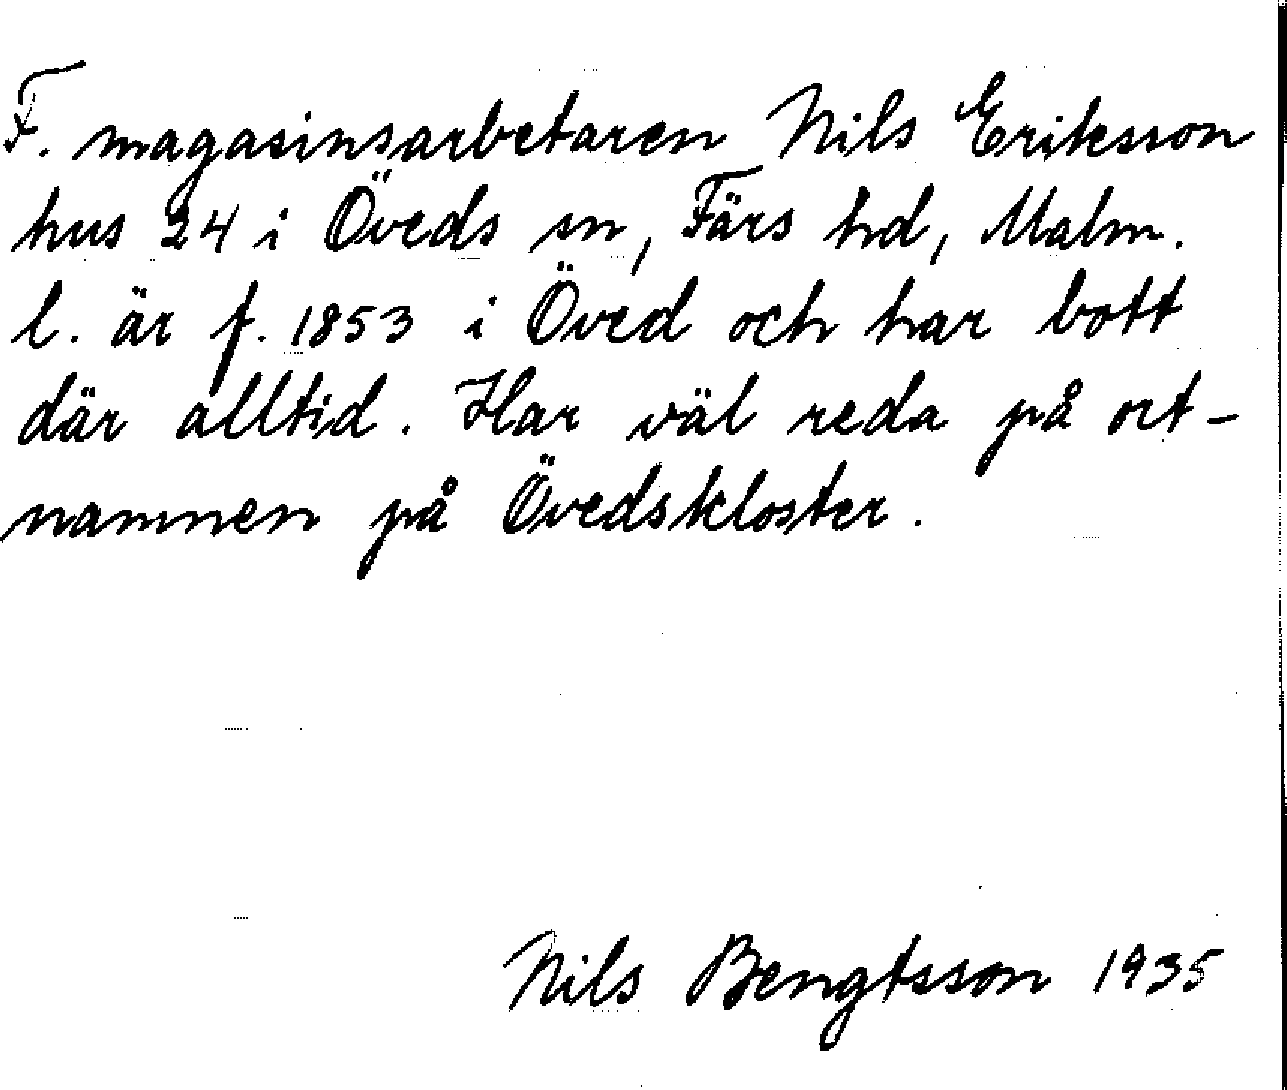 F. magasinsarbetaren Nils Eriksson
hus 24 i Öveds sn, Färs hd, Malm.
l. är f. 1853 i Öved och har bott
där alltid. Har väl reda på ort-
namnen på Övedskloster.
Nils Bengtsson 1935